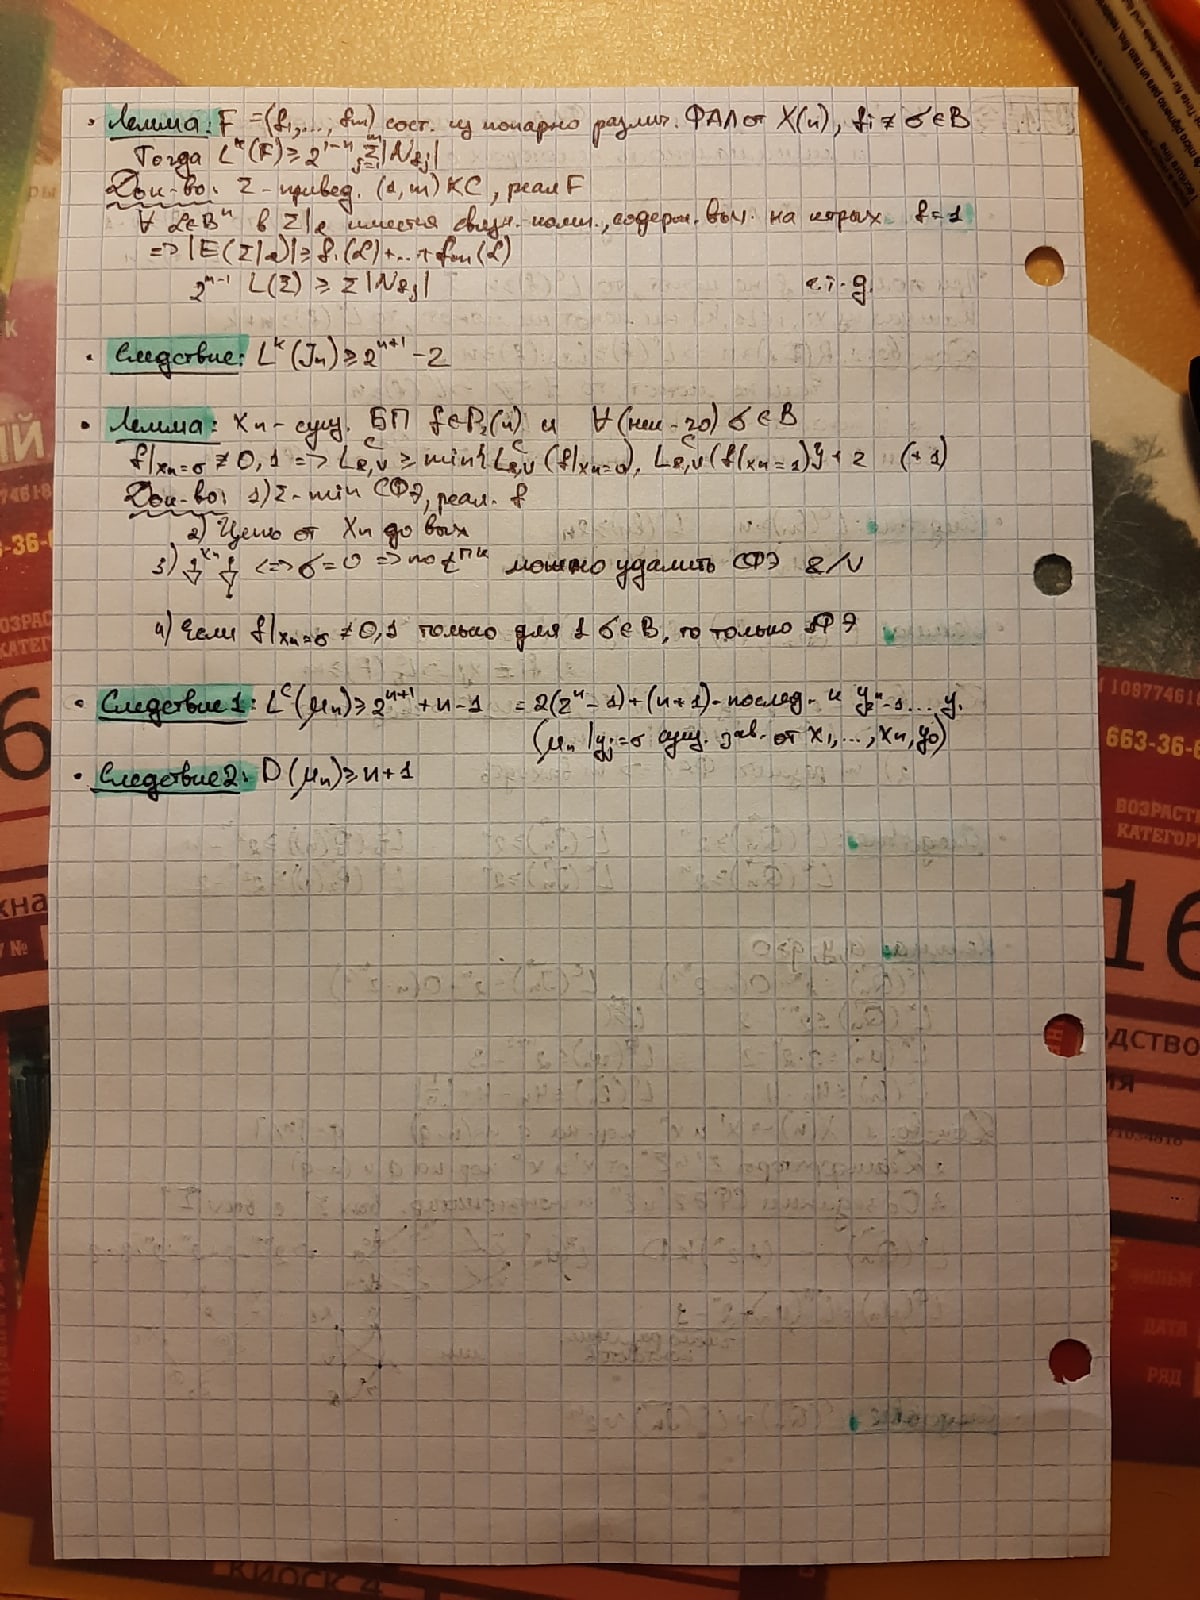 • Лемма: F = (f₁,..., fₘ) сост. из попарно различ. ФАЛ от X(n), fᵢ ≢ σ ∈ B
Тогда Lᵏ(F) ≥ 2¹⁻ⁿ Σⱼ₌₁ᵐ |N_fⱼ|
Док-во: Σ - привед. (1, m) КС, реал F
∀ α∈Bⁿ в Σ|α имеется связн. комп., содерж. вых. на ктрых f = 1
=> |E(Σ|α)| ≥ f₁(α)+...+fₘ(α)
2ⁿ⁻¹ L(Σ) ≥ Σ|N_fⱼ| ч.т.д.
• Следствие: Lᵏ(Jₙ) ≥ 2ⁿ⁺¹ - 2
• Лемма: xₙ - сущ. БП f∈P₂(n) и ∀ (нек-го) σ ∈ B
f|xₙ=σ ≢ 0,1 => Lᶜ&,v ≥ min{Lᶜ&,v (f|xₙ=0), Lᶜ&,v (f|xₙ=1)} + 2 (+1)
Док-во: 1) Σ - min СФЭ, реал. f
2) Цепь от xₙ до вых
3) xₙ <=> σ = 0 => по tᴾᴷ можно удалить СФЭ &/v
4) Если f|xₙ=σ ≢ 0,1 только для 1 σ∈B, то только 1ФЭ
• Следствие 1: Lᶜ(μₙ) ≥ 2ⁿ⁺¹ + n - 1 = 2(2ⁿ - 1) + (n+1) - послед-и y₂ⁿ-1 ... y₁
(μₙ|yⱼ=σ сущ. зав. от x₁,..., xₙ, y₀)
• Следствие 2: D(μₙ) ≥ n + 1
663-36-6
ВОЗРАСТ
КАТЕГОР
16
ДАТА
РЯД
КИОСК 4